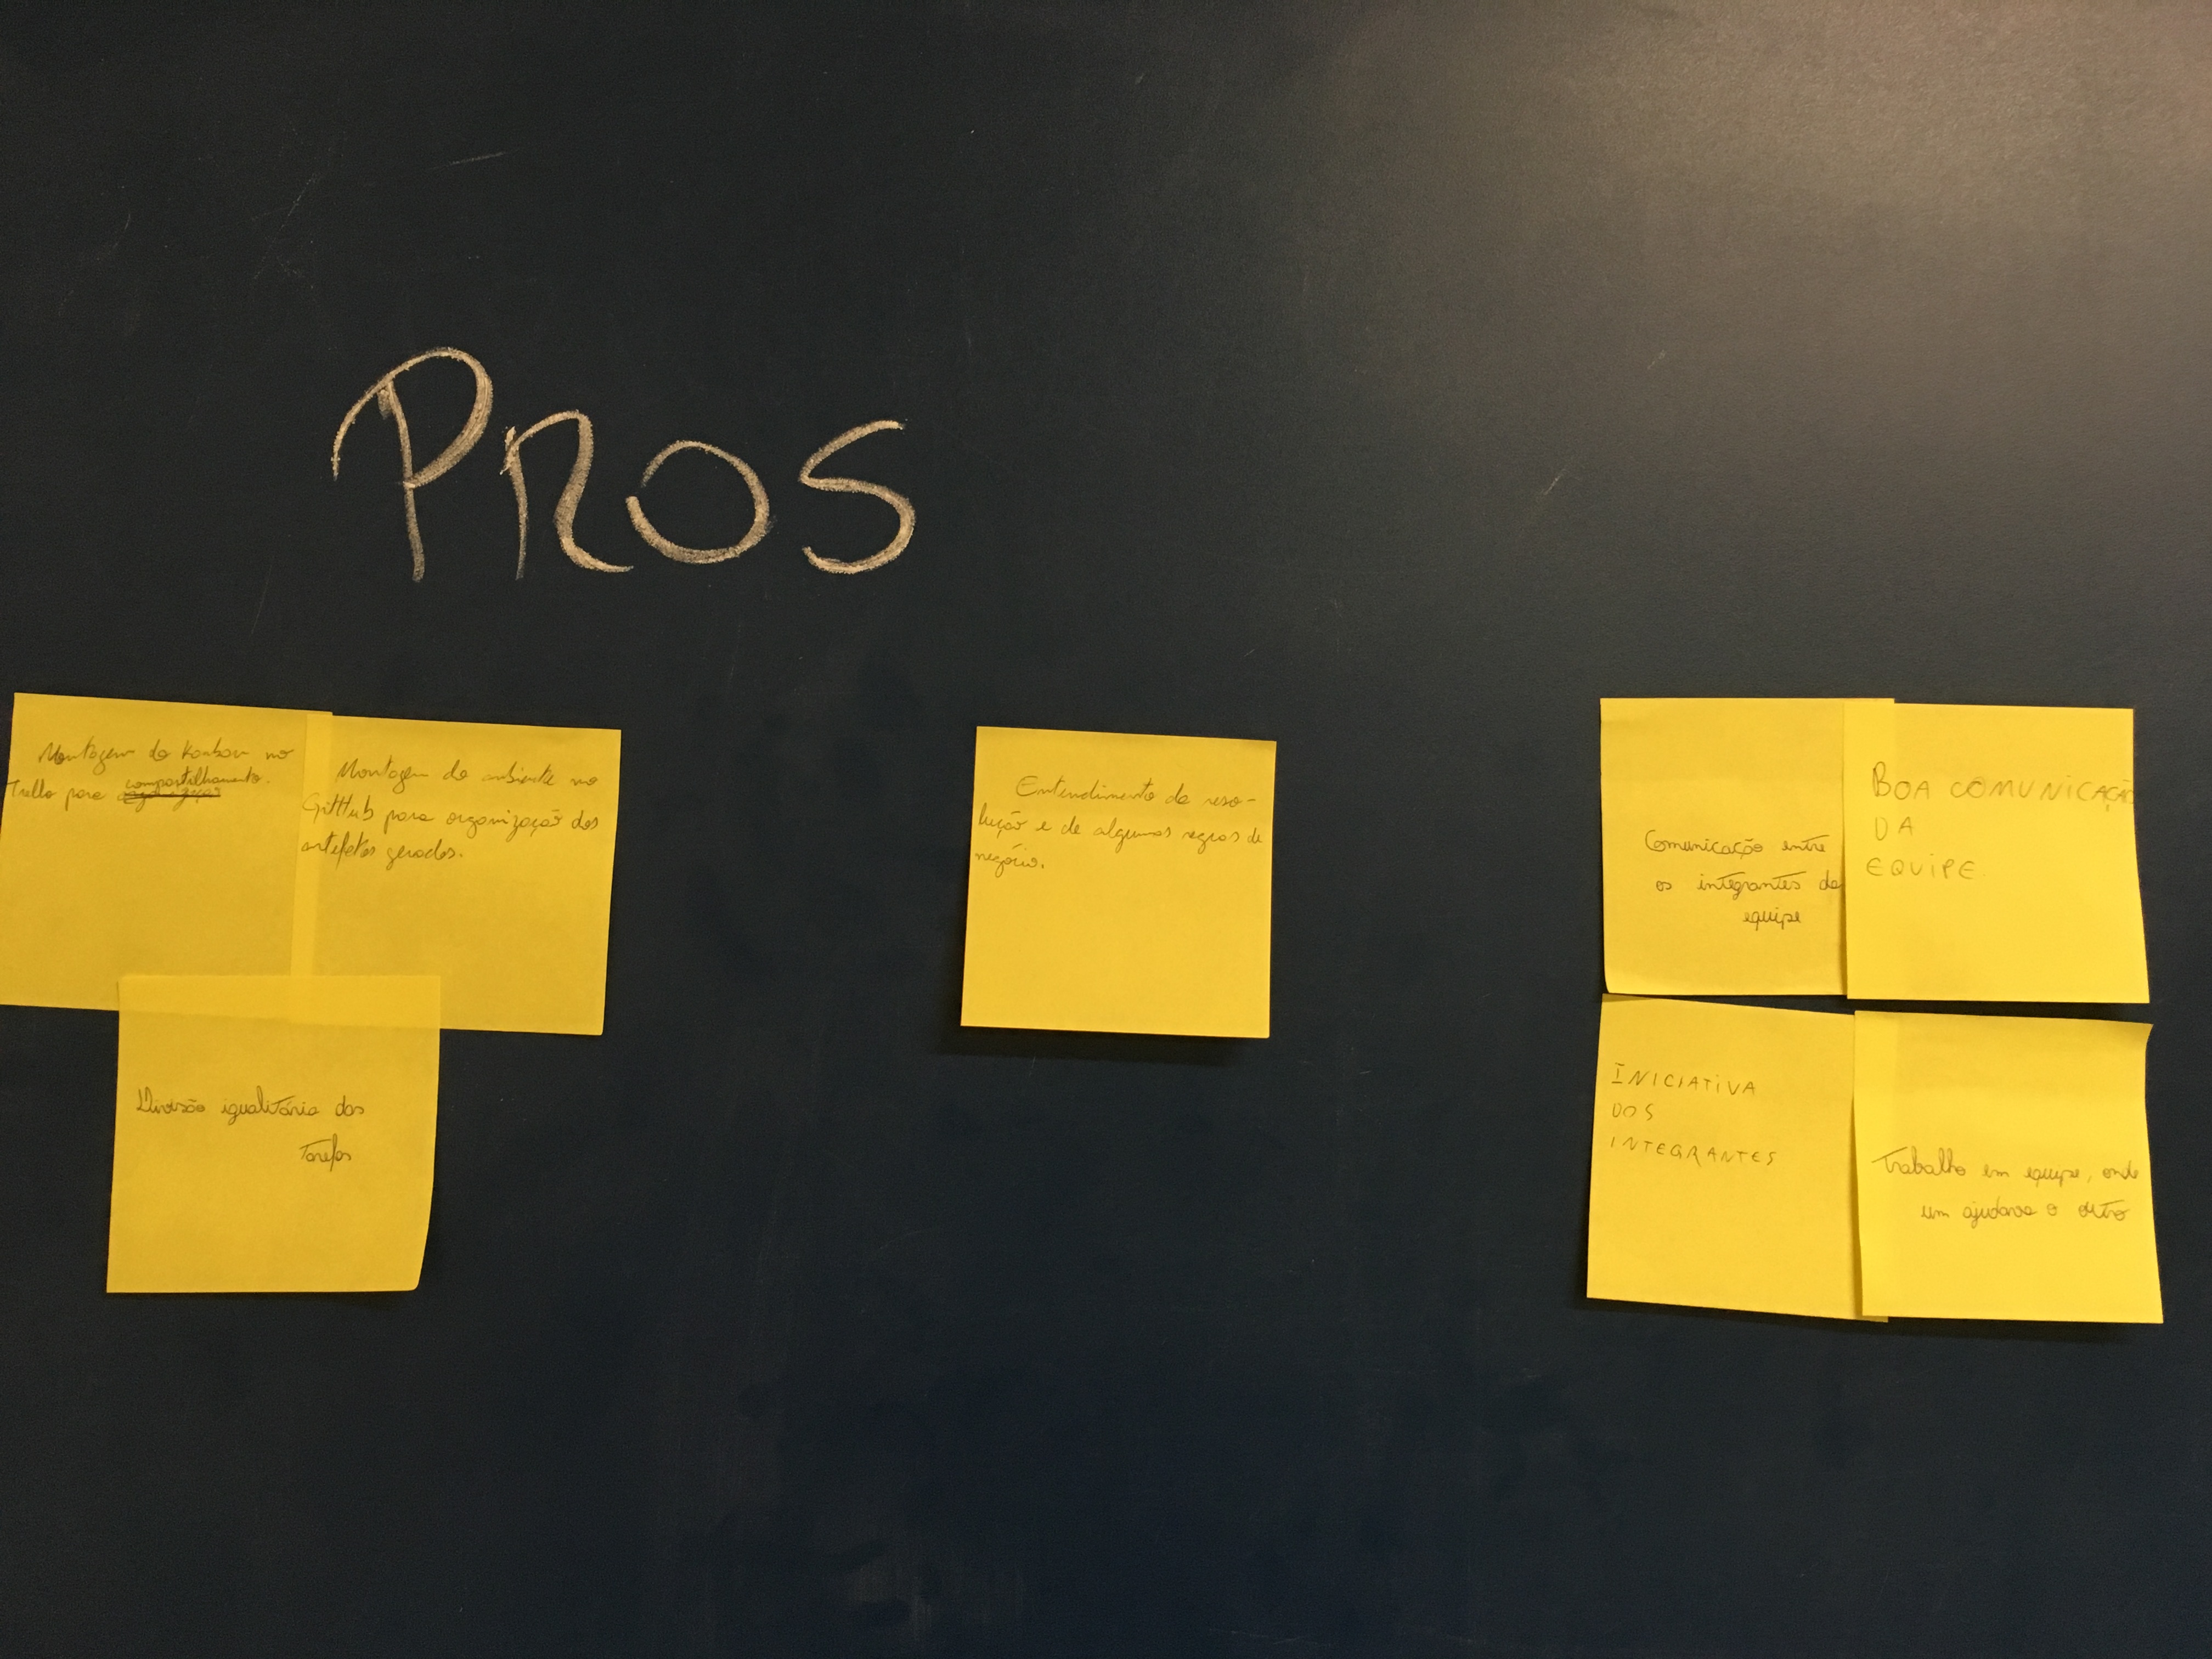 PROS
Montagem do Kanban no
Trello para compartilhamento.
Montagem do ambiente no
GitHub para organização dos
artefatos gerados.
Divisão igualitária das
Tarefas
Entendimento da reso-
lução e de algumas regras de
negócio.
Comunicação entre
os integrantes da
equipe
BOA COMUNICAÇÃO
DA
EQUIPE
INICIATIVA
DOS
INTEGRANTES
Trabalho em equipe, onde
um ajudava o outro